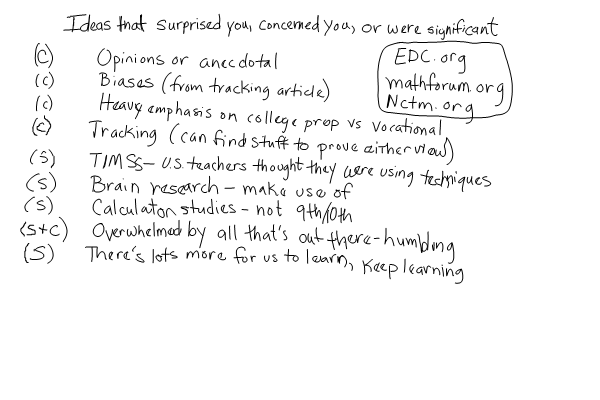 Ideas that surprised you, concerned you, or were significant
(C) Opinions or anecdotal
(C) Biases (from tracking article)
(C) Heavy emphasis on college prep vs vocational
(C) Tracking (can find stuff to prove either view)
(S) TIMSS - U.S. teachers thought they were using techniques
(S) Brain research - make use of
(S) Calculator studies - not 9th/10th
(S+C) Overwhelmed by all that's out there - humbling
(S) There's lots more for us to learn, keep learning
EDC.org
mathforum.org
Nctm.org